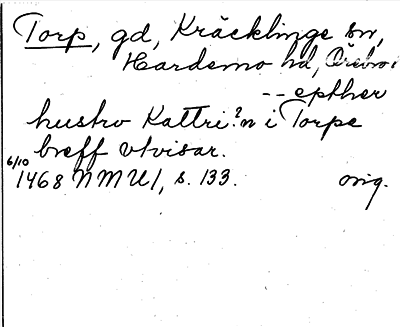 Torp, gd, Kräcklinge sn,
Hardemo hd, Örebro
-- epther
hustro Kattri?n i Torpe
breff vtvisar.
6/10
1468 NMU 1, s. 133. orig.